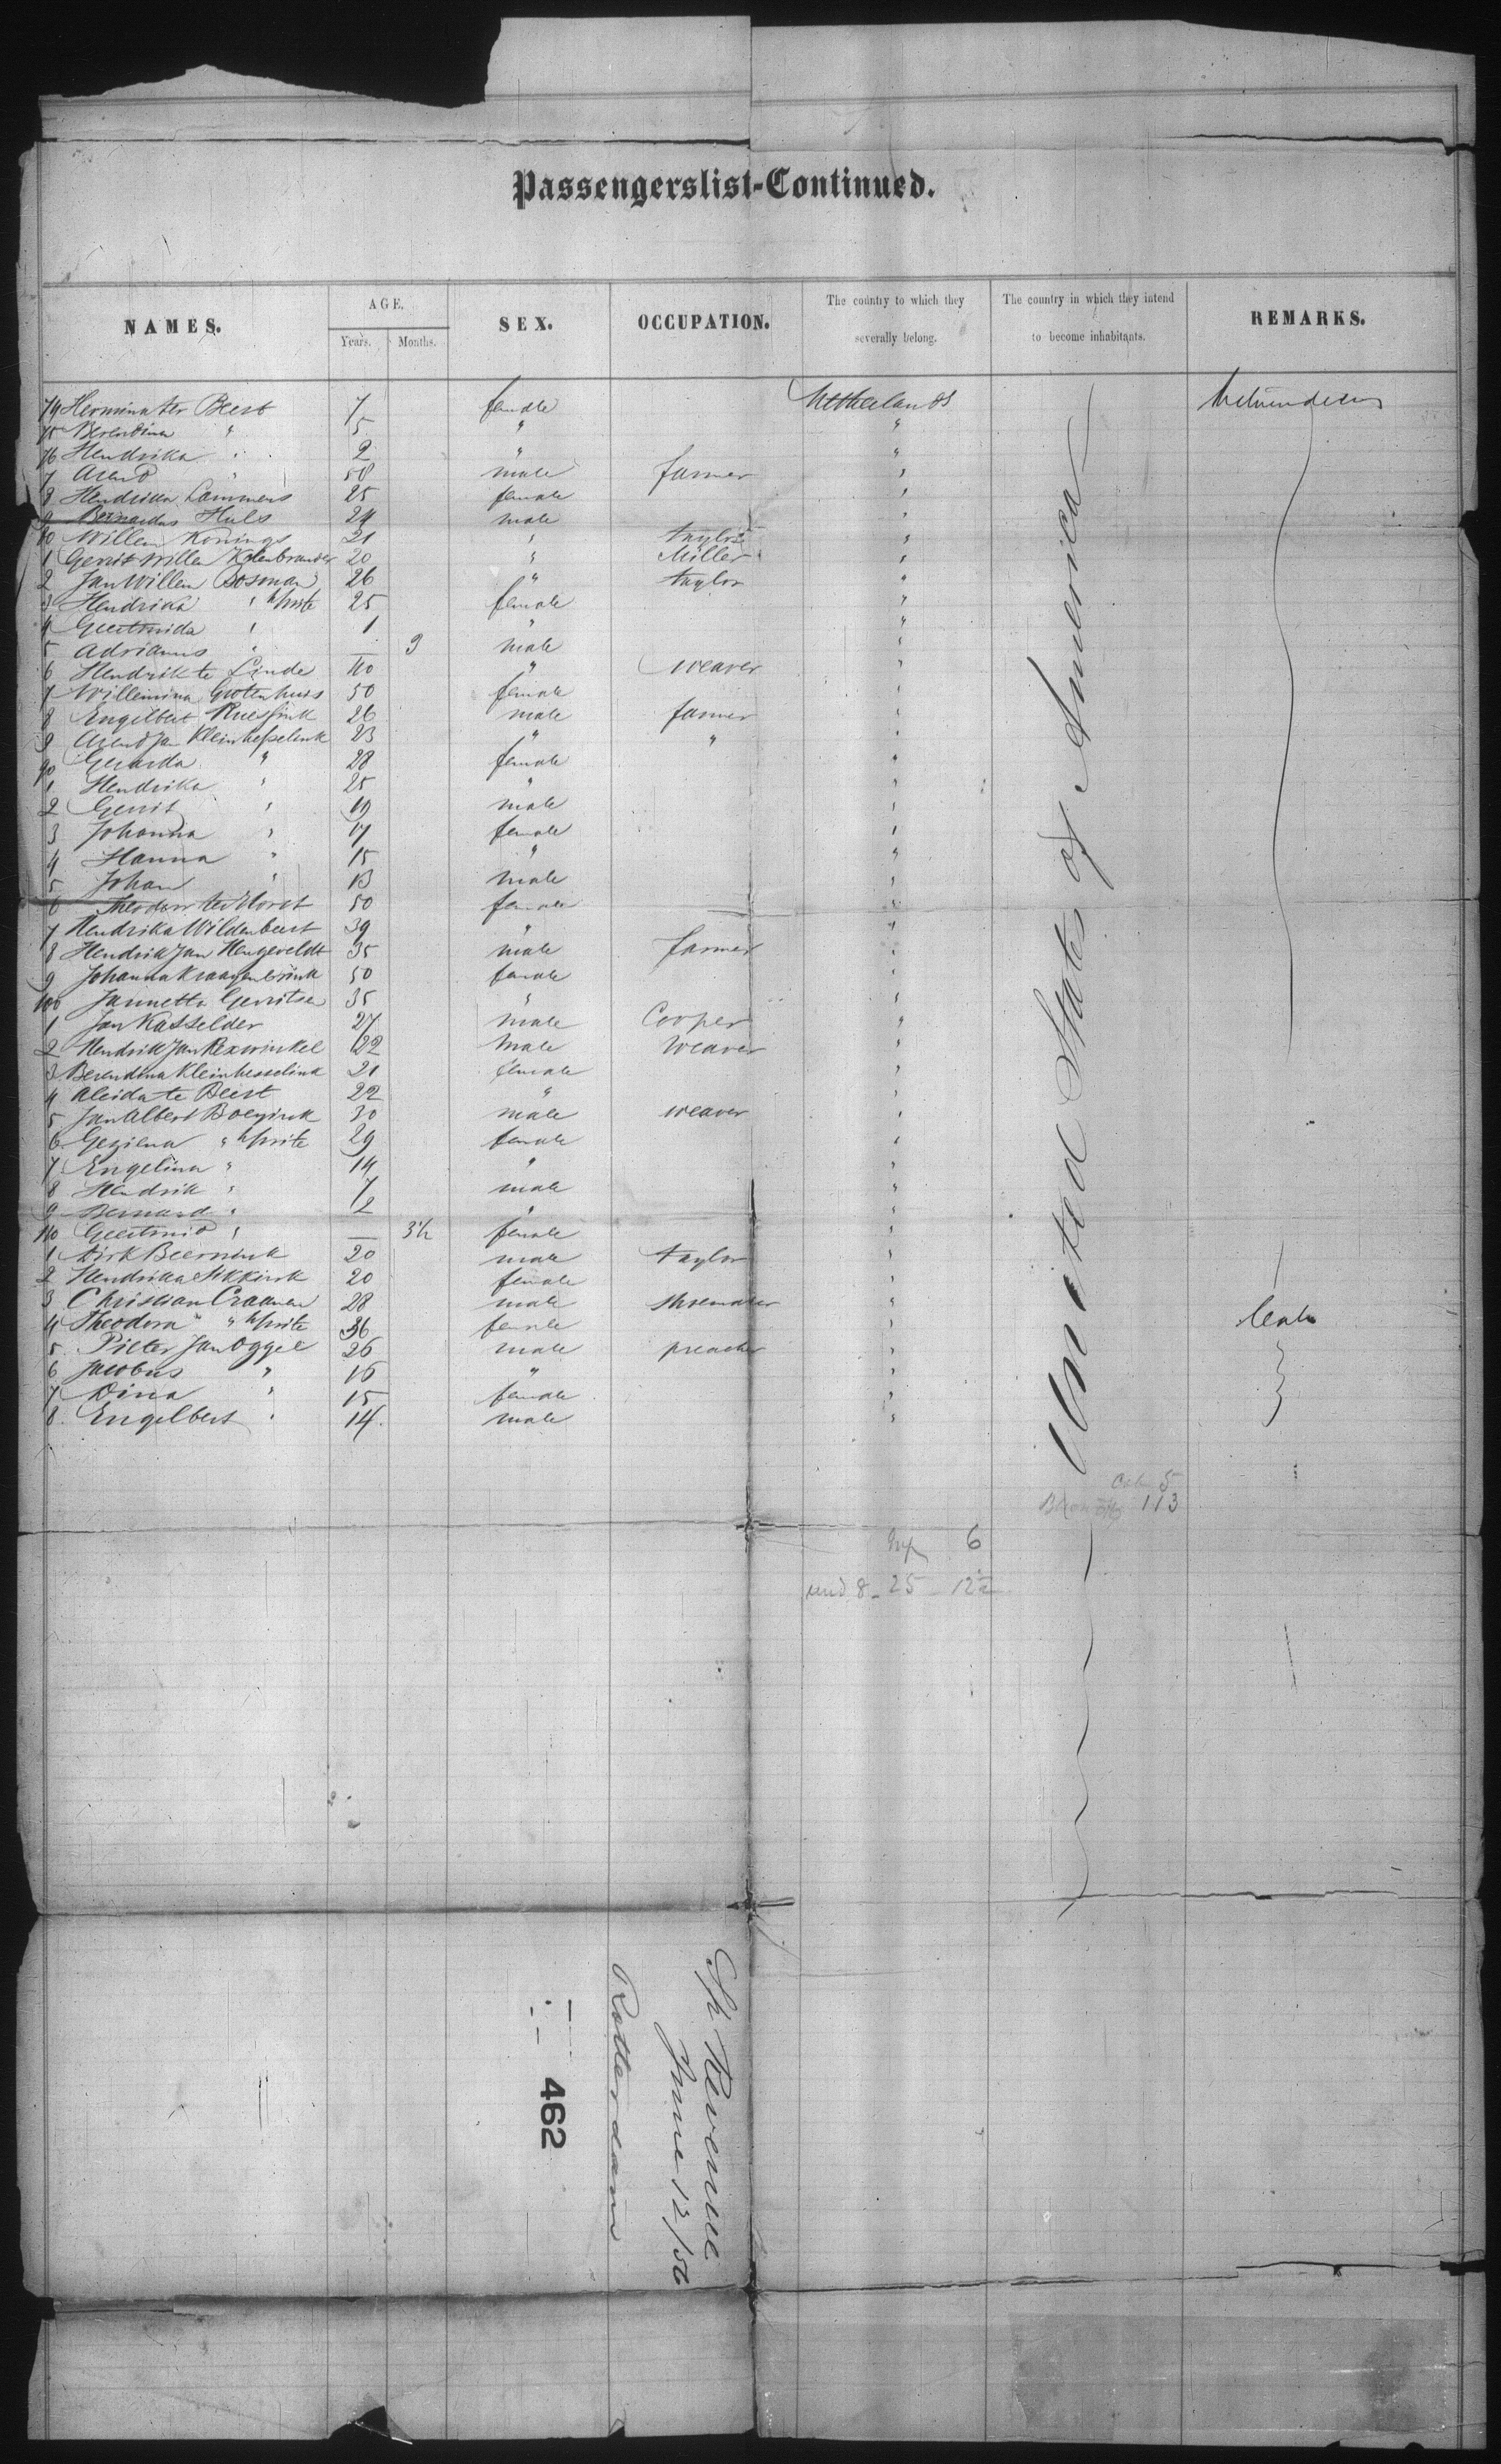 Passengerslist-Continued.
NAMES. AGE. SEX. OCCUPATION. The country to which they severally belong. The country in which they intend to become inhabitants. REMARKS.
Years. Months.
74 Hermina ter Beest 7 female Netherlands
75 Berendina " 5 " "
76 Hendrika " 2 " "
7 Arend " 58 male farmer "
8 Hendrika Lammers 25 female "
9 Bernardus Huls 24 male "
80 Willem Konings 21 " taylor "
1 Gerrit Willem Kolenbrander 20 " Miller "
2 Jan Willem Bosman 26 " taylor "
3 Hendrika " 25 female "
4 Geertruida " 1 " "
5 Adrianus " — 9 male "
6 Hendrik te Linde 40 " weaver "
7 Willemina Grotenhuis 50 female "
8 Engelbert Ruessink 26 male farmer "
9 Arend Jan Kleinhesselink 23 " " "
90 Gerarda " 28 female "
1 Hendrika " 25 " "
2 Gerrit " 19 male "
3 Johanna " 17 female "
4 Hanna " 15 " "
5 Johan " 13 male "
6 Theodora ter Horst 50 female "
7 Hendrika Wildenbeest 39 " "
8 Hendrik Jan Hengeveldt 35 male farmer "
9 Johanna Kraayenbrink 50 female "
100 Jannetta Gerritsen 35 " "
1 Jan Kasselder 27 male Cooper "
2 Hendrik Jan Rexwinkel 22 Male Weaver "
3 Berendina Kleinhesselink 21 female "
4 Aleida te Beest 22 " "
5 Jan Albert Boeyink 30 male weaver "
6 Geziena " 29 female "
7 Engelina " 14 " "
8 Hendrik " 7 male "
9 Bernard " 2 " "
110 Geertruid " — 3½ female "
1 Dirk Beernink 20 male taylor "
2 Hendrika Sikkink 20 female "
3 Christian Craanen 28 male shoemaker "
4 Theodora " 36 female "
5 Pieter Jan Oggel 26 male preacher "
6 Jacobus " 16 " "
7 Dina " 15 female "
8 Engelbert " 14 male "
United States of America
Cab 5
113
6
und 8 - 25 - 12½
Sh Revenue
June 12/56
Rotterdam
462